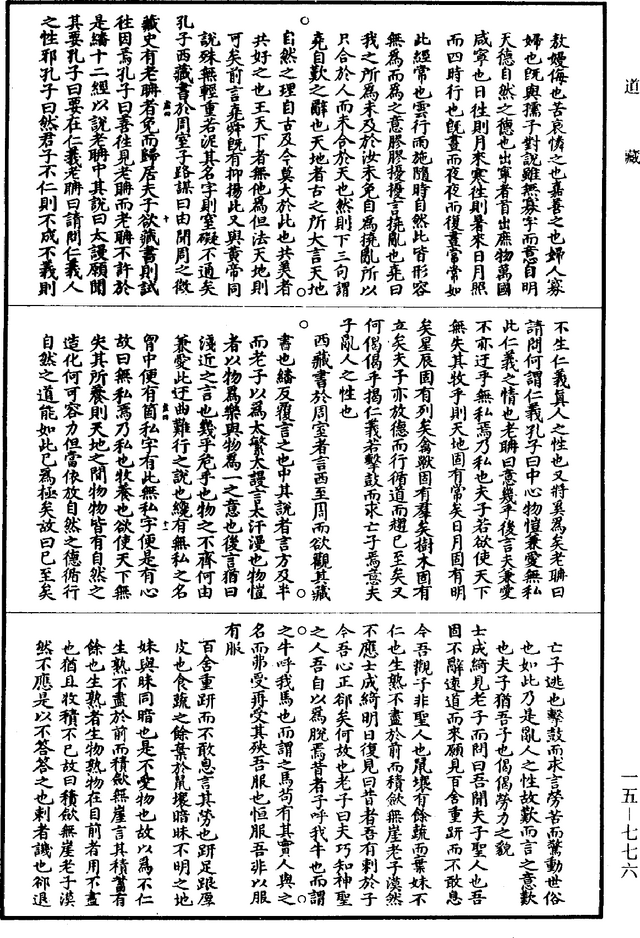 道藏
敖嫚侮也苦哀憐之也嘉善之也婦人寡
婦也旣與孺子對說雖無寡字而意自明
天德自然之德也出寧者首出庶物萬國
咸寧也日往則月來寒往則暑來日月照
而四時行也旣晝而夜夜而復晝常常如
此經常也雲行雨施隨時自然此皆形容
無為而為之意膠膠擾擾言撓亂也堯曰
我之所為未及於汝未免自為撓亂所以
只合於人而未合於天也然則下三句謂
堯自歎之辭也天地者古之所大言天地
自然之理自古及今莫大於此也共美者
共好之也王天下者無他為但法天地則
可矣前言堯舜旣有抑揚此又與黃帝同
說殊無輕重若泥其名字則窒礙不通矣
孔子西藏書於周室子路謀曰由聞周之徵
藏史有老聃者免而歸居夫子欲藏書則試
往因焉孔子曰善往見老聃而老聃不許於
是繙十二經以說老聃中其說曰太謾願聞
其要孔子曰要在仁義老聃曰請問仁義人
之性邪孔子曰然君子不仁則不成不義則
不生仁義真人之性也又將奚為矣老聃曰
請問何謂仁義孔子曰中心物愷兼愛無私
此仁義之情也老聃曰意幾乎後言夫兼愛
不亦迂乎無私焉乃私也夫子若欲使天下
無失其牧乎則天地固有常矣日月固有明
矣星辰固有列矣禽獸固有羣矣樹木固有
立矣夫子亦放德而行循道而趨已至矣又
何偈偈乎揭仁義若擊鼓而求亡子焉意夫
子亂人之性也
西藏書於周室者言西至周而欲觀其藏
書也繙反覆言之也中其說者言方及半
而老子以為太繁太謾言太汗漫也物愷
者以物為樂與物為一之意也後言猶曰
淺近之言也幾乎危乎也物之不齊何由
兼愛此迂曲難行之說也纔有無私之名
胷中便有箇私字有此無私字便是有心
故曰無私焉乃私也牧養也欲使天下無
失其所養則天地之間物物皆有自然之
造化何可容力但當依放自然之德循行
自然之道能如此已為極矣故曰已至矣
亡子逃也擊鼓而求言勞苦而驚動世俗
也如此乃是亂人之性故歎而言之意歎
也夫子猶吾子也偈偈勞力之貌
士成綺見老子而問曰吾聞夫子聖人也吾
固不辭遠道而來願見百舍重趼而不敢息
今吾觀子非聖人也鼠壤有餘蔬而棄妹不
仁也生熟不盡於前而積斂無崖老子漠然
不應士成綺明日復見曰昔者吾有刺於子
今吾心正郤矣何故也老子曰夫巧知神聖
之人吾自以為脫焉昔者子呼我牛也而謂
之牛呼我馬也而謂之馬苟有其實人與之
名而弗受再受其殃吾服也恒服吾非以服
有服
百舍重趼而不敢息言其勞也趼足跟厚
皮也食蔬之餘棄於鼠壤暗昧不明之地
妹與昧同暗也是不愛物也故以為不仁
生熟不盡於前而積斂無崖言其積蓄有
餘也生熟者生物熟物在目前者用不盡
也猶且收積不已故曰積斂無崖老子漠
然不應是以不答答之也刺者譏也郤退
一五—七七六